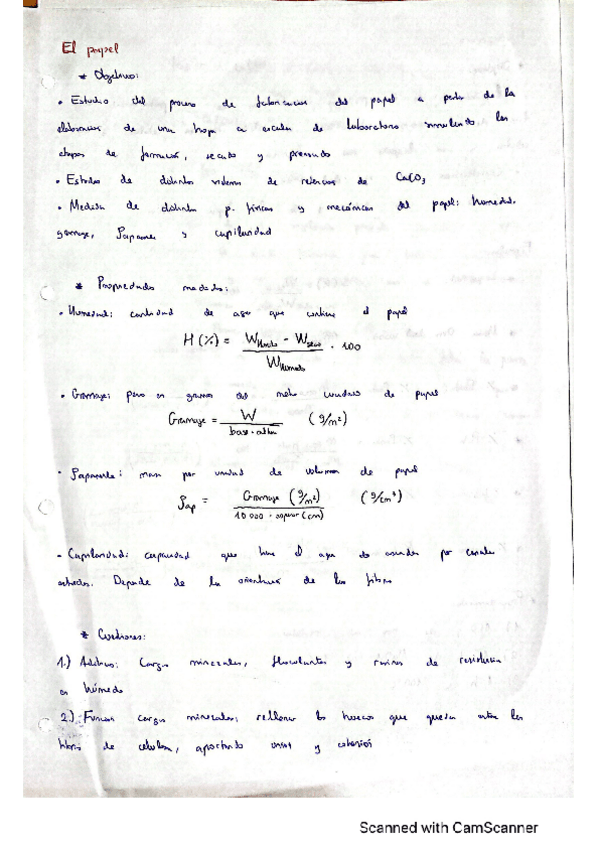 El papel
* Objetivos:
• Estudio del proceso de fabricación del papel a partir de la
elaboración de una hoja a escala de laboratorio simulando las
etapas de formación, secado y prensado
• Estudio de distintos sistemas de retención de CaCO3
• Medida de distintas p. físicas y mecánicas del papel: humedad,
gramaje, ρaparente y capilaridad
* Propiedades medidas:
• Humedad: cantidad de agua que contiene el papel
H (%) = (W húmedo - W seco) / W húmedo · 100
• Gramaje: peso en gramos del metro cuadrado de papel
Gramaje = W / (base · altura) (g/m²)
• ρaparente: masa por unidad de volumen de papel
ρap = Gramaje (g/m²) / (10 000 · espesor (cm)) (g/cm³)
• Capilaridad: capacidad que tiene el agua de ascender por canales
estrechos. Depende de la orientación de las fibras
* Cuestiones:
1.) Aditivos: Cargas minerales, floculantes y resinas de resistencia
en húmedo
2.) Función cargas minerales: rellenar los huecos que quedan entre las
fibras de celulosa, aportando y cohesión
Scanned with CamScanner